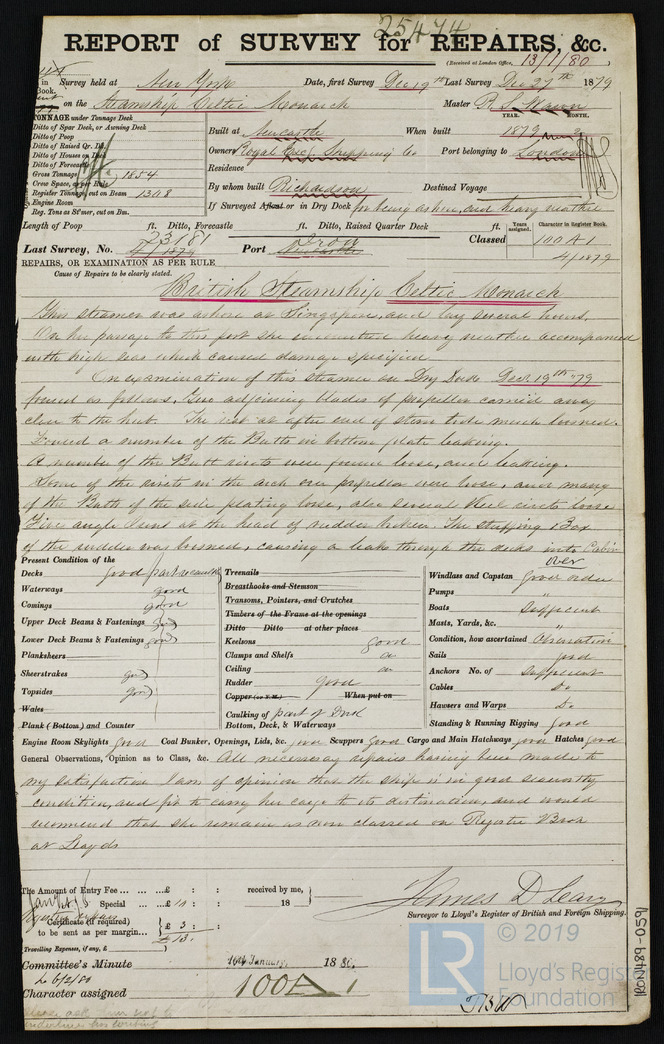 25474
REPORT of SURVEY for REPAIRS, &c.
(Received at London Office, 13/1/80
in Survey held at New York Date, first Survey Dec 19th Last Survey Dec 27th 1879
Book.
on the Steamship Celtic Monarch Master
YEAR. MONTH.
TONNAGE under Tonnage Deck
Ditto of Spar Deck, or Awning Deck
Ditto of Poop
Ditto of Raised Qr. Dk.
Ditto of Houses on Deck
Ditto of Forecastle
Gross Tonnage 1654
Crew Space, as per Rule
Register Tonnage, cut on Beam 1308
Engine Room
Reg. Tons as St'mer, cut on Bm.
Built at Newcastle When built 1879
Owners Royal Exc. Shipping Co Port belonging to London
Residence
By whom built Richardson Destined Voyage
If Surveyed Afloat or in Dry Dock for being ashore, and heavy weather
Length of Poop ft. Ditto, Forecastle ft. Ditto, Raised Quarter Deck ft. Years assigned. Character in Register Book.
23181
Last Survey, No. 4/1879 Port Newcastle Classed 100 A 1
4/1879
REPAIRS, OR EXAMINATION AS PER RULE
Cause of Repairs to be clearly stated.
British Steamship Celtic Monarch
This steamer was ashore at Singapore, and lay several hours.
On her passage to this port she encountered heavy weather accompanied
with high seas which caused damage specified
On examination of this steamer on Dry Dock Dec 19th "79
found as follows, adjoining blades of propellor carried away
close to the hub. The at after end of stern tube much loosned.
Found a number of the Butts in bottom plate leaking.
A number of the Butt rivets were found loose, and leaking.
Some of the rivets in the arch over propellor were loose, and many
of the Butts of the side plating loose, also several Keel rivets loose
angle Irons at the head of rudder broken. The stuffing Box
of the rudder was loosned, causing a leak through the decks into Cabin
Present Condition of the over
Decks good part recaulked
Waterways good
Comings good
Upper Deck Beams & Fastenings good
Lower Deck Beams & Fastenings good
Planksheers
Sheerstrakes good
Topsides good
Wales
Plank (Bottom) and Counter
Treenails
Breasthooks and Stemson
Transoms, Pointers, and Crutches
Timbers of the Frame at the openings
Ditto Ditto at other places
Keelsons good
Clamps and Shelfs do
Ceiling do
Rudder good
Copper (or Y.M.) When put on
Caulking of part of Deck
Bottom, Deck, & Waterways
Windlass and Capstan good order
Pumps "
Boats sufficient
Masts, Yards, &c. "
Condition, how ascertained Observation
Sails good
Anchors No. of sufficient
Cables Do
Hawsers and Warps Do
Standing & Running Rigging good
Engine Room Skylights good Coal Bunker, Openings, Lids, &c. good Scuppers good Cargo and Main Hatchways good Hatches good
General Observations, Opinion as to Class, &c. All necessary repairs having been made to
my satisfaction I am of opinion that the ship is in good seaworthy
condition, and fit to carry her cargo to its destination, and would
recomend that she remain as now classed on Register Book
at Lloyds
The Amount of Entry Fee ... ... ...£ : : received by me,
Special ... ...£ 10 : : 18
Certificate (if required) £ 3 : :
to be sent as per margin... £ 13.
(Travelling Expenses, if any, £ )
James D Leary
Surveyor to Lloyd's Register of British and Foreign Shipping.
Committee's Minute 16th January, 1880.
6/2/80
Character assigned 100A1
© 2019
LR
Lloyd's Register
Foundation